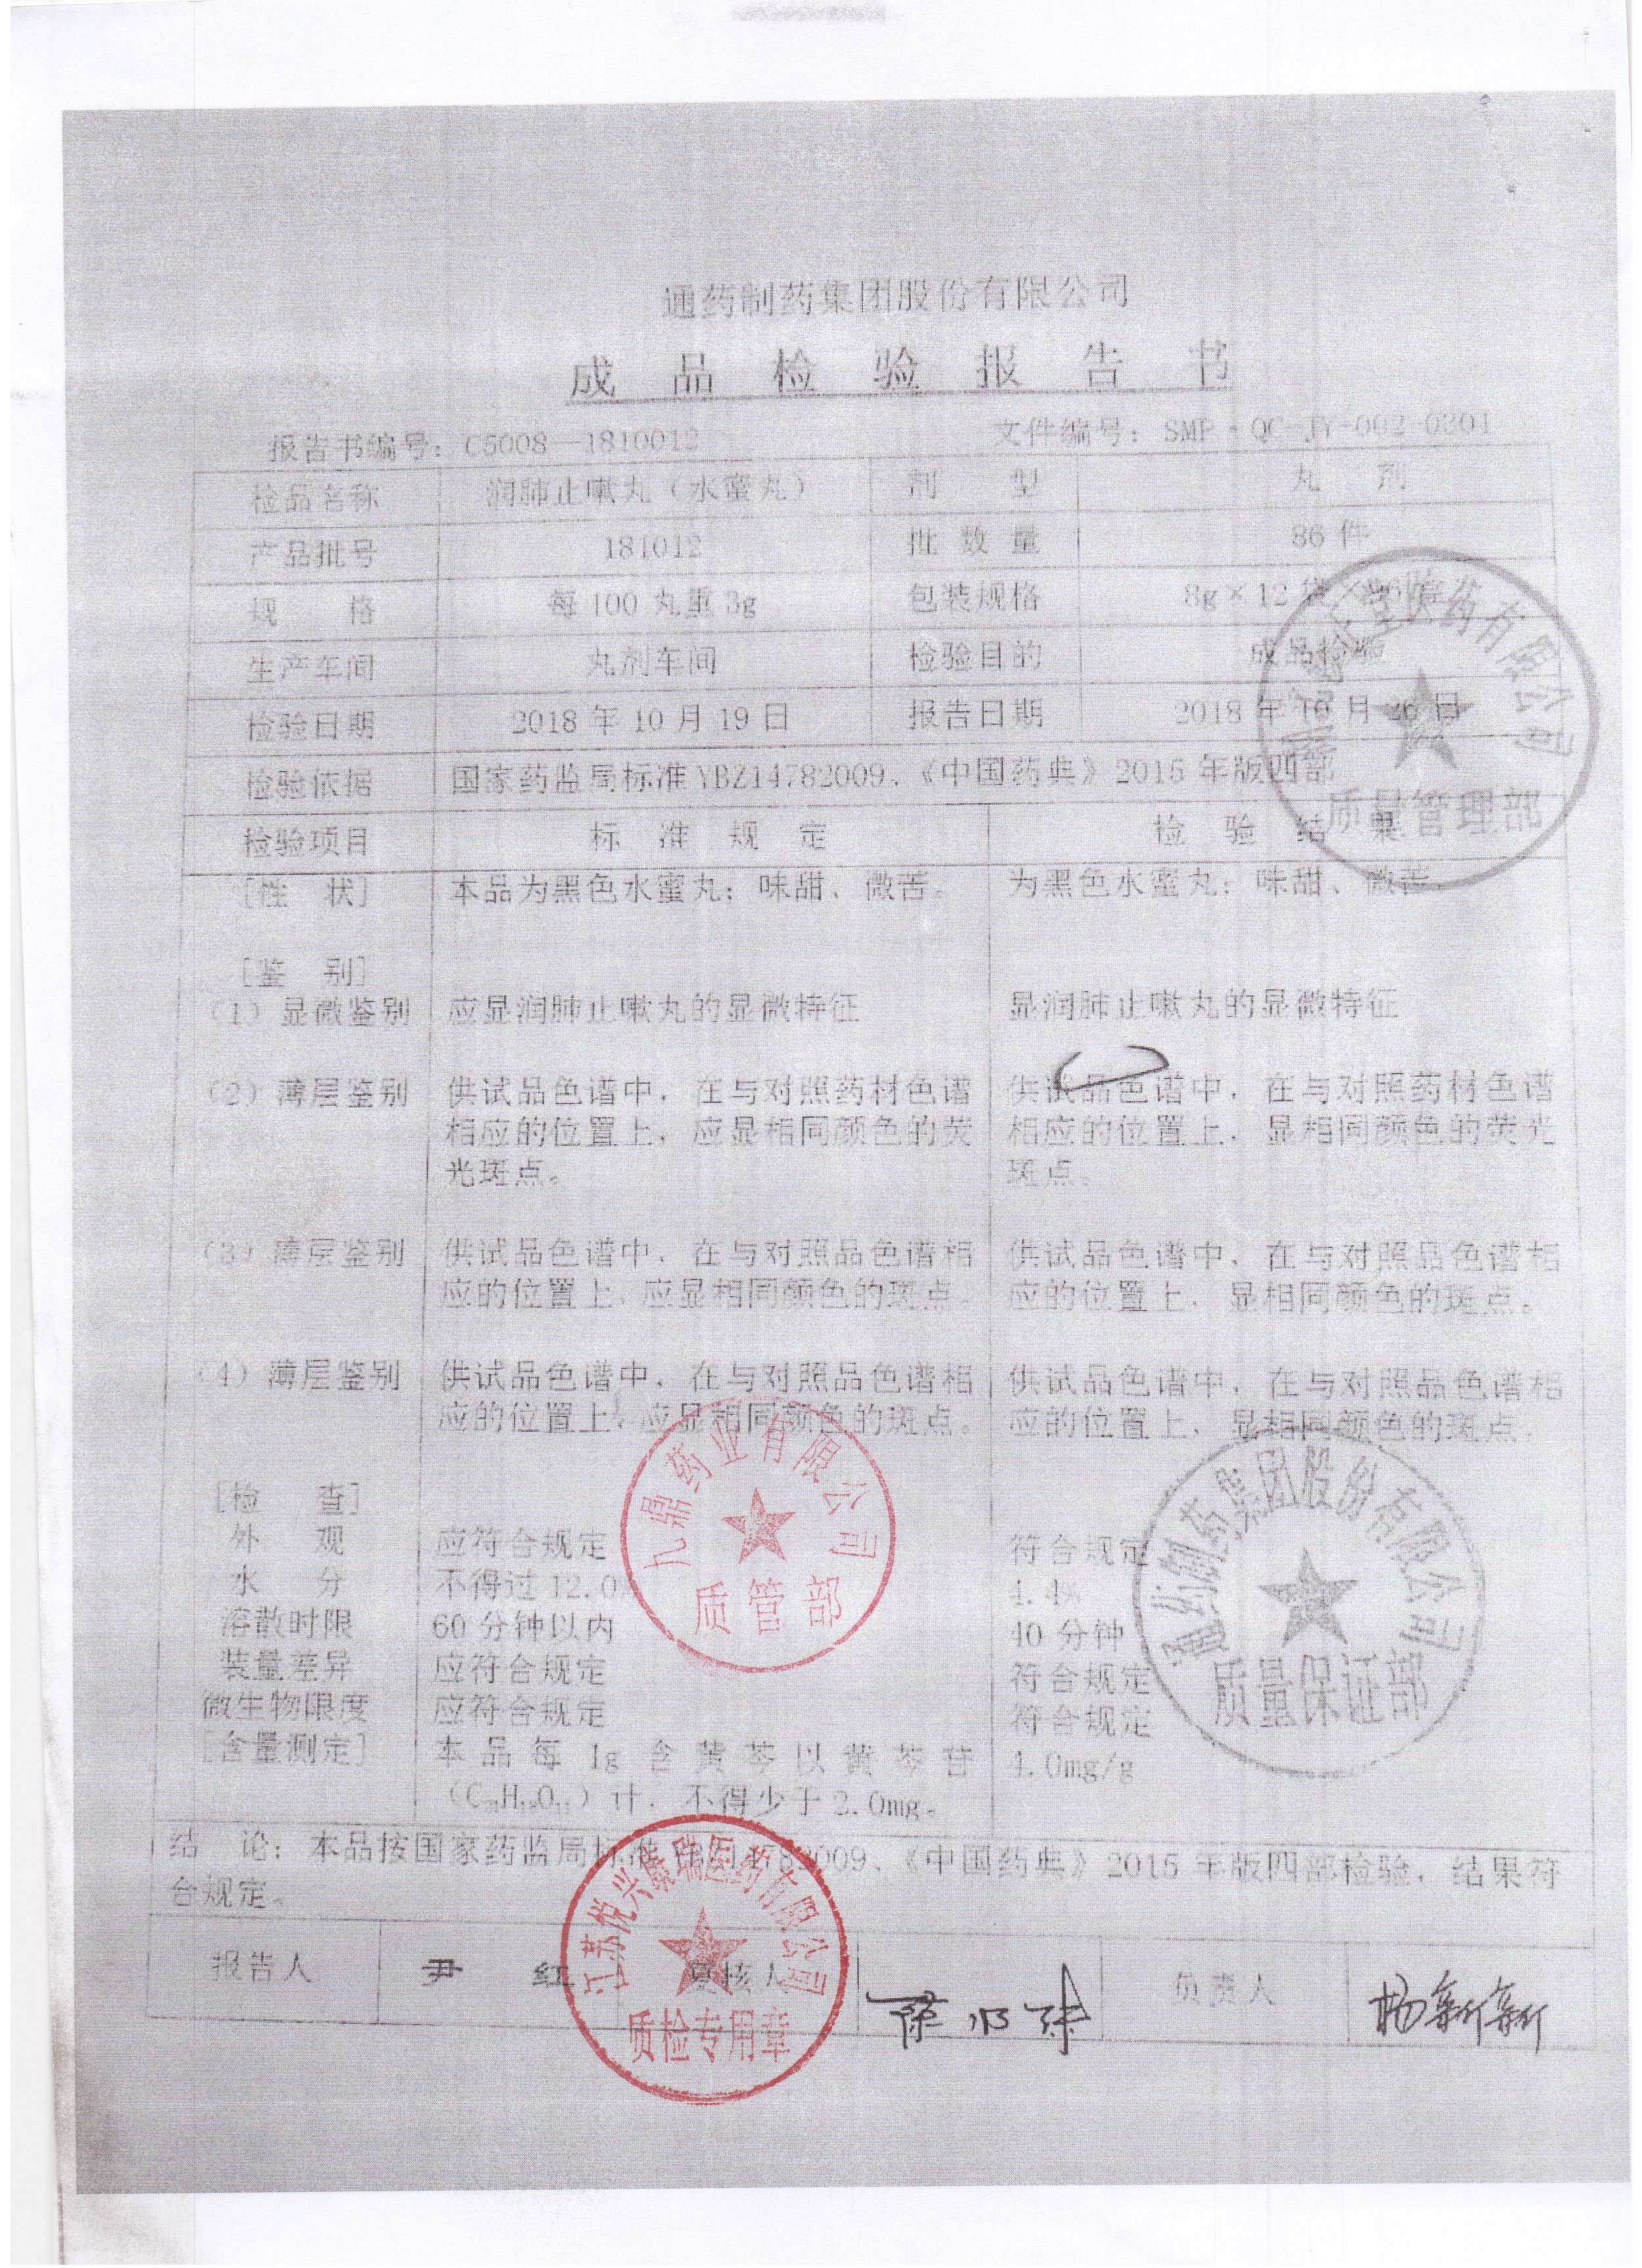 通药制药集团股份有限公司
成品检验报告书
报告书编号：C5008—1810012 文件编号：SMP·QC-JY-002-0201
检品名称 润肺止嗽丸（水蜜丸） 剂型 丸剂
产品批号 181012 批数量 86件
规格 每100丸重3g 包装规格 8g×12袋
生产车间 丸剂车间 检验目的 成品检验
检验日期 2018年10月19日 报告日期 2018年10月 日
检验依据 国家药监局标准YBZ14782009、《中国药典》2015年版四部
检验项目 标准规定 检验结果
质量管理部
[性状] 本品为黑色水蜜丸；味甜、微苦。 为黑色水蜜丸；味甜、微苦。
[鉴别]
（1）显微鉴别 应显润肺止嗽丸的显微特征 显润肺止嗽丸的显微特征
（2）薄层鉴别 供试品色谱中，在与对照药材色谱 供试品色谱中，在与对照药材色谱
相应的位置上，应显相同颜色的荧 相应的位置上，显相同颜色的荧光
光斑点。 斑点。
（3）薄层鉴别 供试品色谱中，在与对照品色谱相 供试品色谱中，在与对照品色谱相
应的位置上，应显相同颜色的斑点。 应的位置上，显相同颜色的斑点。
（4）薄层鉴别 供试品色谱中，在与对照品色谱相 供试品色谱中，在与对照品色谱相
应的位置上，应显相同颜色的斑点。 应的位置上，显相同颜色的斑点。
九鼎药业有限公司
质管部
通药制药集团股份有限公司
质量保证部
[检查]
外观 应符合规定 符合规定
水分 不得过12.0 4.4%
溶散时限 60分钟以内 40分钟
装量差异 应符合规定 符合规定
微生物限度 应符合规定 符合规定
[含量测定] 本品每1g含黄芩以黄芩苷 4.0mg/g
（C₂₁H₁₈O₁₁）计，不得少于2.0mg。
结论：本品按国家药监局标准YBZ14782009、《中国药典》2015年版四部检验，结果符
合规定。
江苏悦兴康瑞医药有限公司
质检专用章
报告人 尹红 复核人 负责人 杨新新